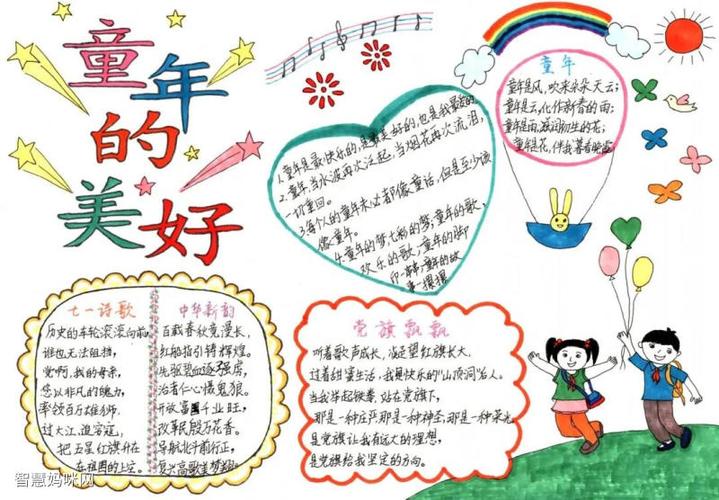 童年
的
美好
童年
童年是风,吹来朵朵天云;
童年是云,化作新春的雨;
童年是雨,滋润初生的花;
童年是花,伴我
1.童年是最快乐的,是最美好的,也是我最
2.童年,当水波再次泛起,当烟花再次流泪,
一切重回。
3.每个人的童年未必都像童话,但是至少该
像童年。
4.童年的梦,七彩的梦,童年的歌,
欢乐的歌,童年的脚
印一串串,童年的故
事一摞摞
七一诗歌
历史的车轮滚滚向前,
谁也无法阻挡,
党啊,我的母亲,
您以非凡的魄力,
率领百万雄师,
过大江,迎穷寇,
把五星红旗升在
在祖国的上空。
中华新韵
百载春秋竞漫长,
红船指引铸辉煌。
先驱碧血逐强虏,
治者仁心慑鬼狼。
开放富国千业旺,
改革民殷万花香。
导航北斗前行正,
复兴高歌美梦
党旗飘飘
听着歌声成长,凝望红旗长大
过着甜蜜生活,我是快乐的"山顶洞"名人。
当我举起铁拳,站在党旗下,
那是一种庄严,那是一种神圣,那是一种荣光
是党旗让我有远大的理想,
是党旗给我坚定的方向。
智慧妈咪网